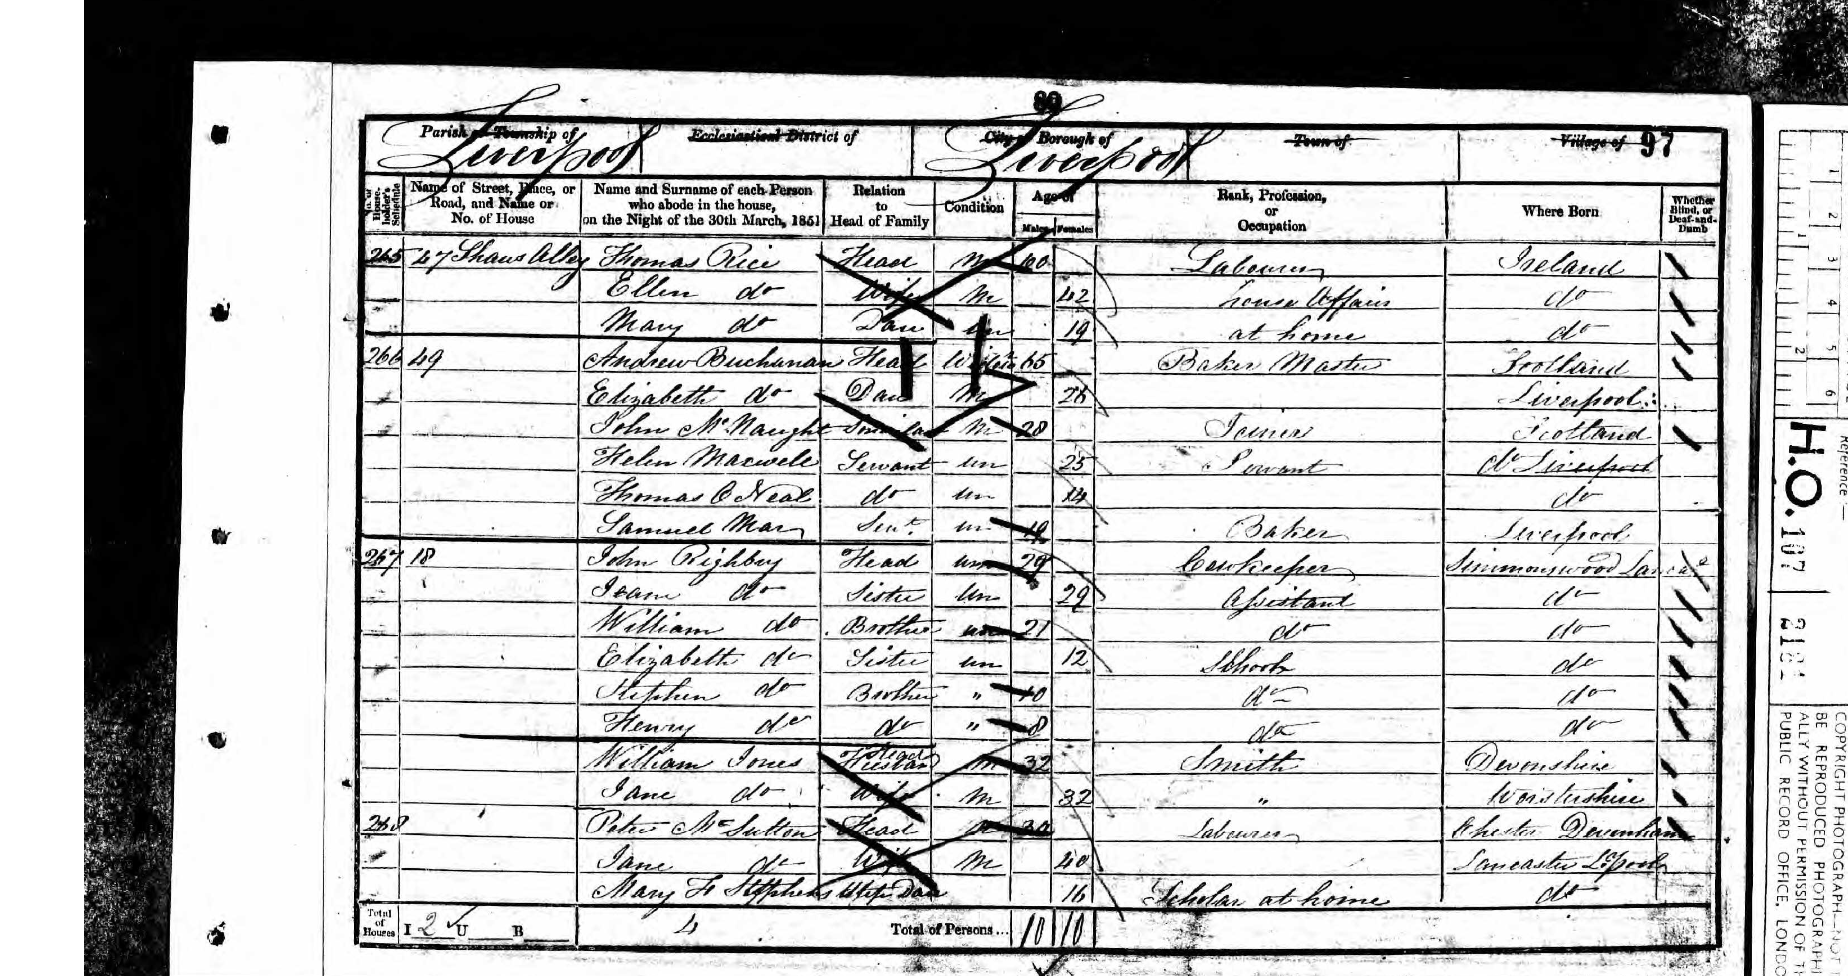 89
Parish or Township of Ecclesiastical District of City or Borough of Town of Village of 97
Liverpool Liverpool
No. of House-holder's Schedule Name of Street, Place, or Road, and Name or No. of House Name and Surname of each Person who abode in the house, on the Night of the 30th March, 1851 Relation to Head of Family Condition Age of Males Females Rank, Profession, or Occupation Where Born Whether Blind, or Deaf-and-Dumb
265 47 Shaws Alley Thomas Rice Head M 60 Labourer Ireland
Ellen do Wife M 42 House Affairs do
Mary do Dau un 19 at home do
266 49 Andrew Buchanan Head 65 Baker Master Scotland
Elizabeth do Dau M 26 Liverpool
John McNaught Son in law M 28 Joiner Scotland
Helen Maxwell Servant un 25 Servant do Liverpool
Thomas O Neal do un 14 do
Samuel Mar Servt un 19 Baker Liverpool
267 18 John Righby Head un 29 Cowkeeper Simmonswood
Jean do Sister un 29 Assistant do
William do Brother un 21 do do
Elizabeth do Sister un 12 School do
Stephen do Brother " 10 do do
Henry do do " 8 do do
William Jones Head M 32 Smith Devonshire
Jane do Wife M 32 " Worstershire
268 Peter McSutton Head Labourer Chester
Jane do Wife M 40 Lancaster Lpool
Mary F Stephens Step Dau 16 Scholar at home do
Total of Houses I 2 U B 4 Total of Persons... 10 10
Reference:-
1 2 3 4 5 6
1 2
H.O. 107
COPYRIGHT PHOTOGRAPH-NOT
BE REPRODUCED PHOTOGRAPHI
ALLY WITHOUT PERMISSION OF T
PUBLIC RECORD OFFICE, LONDO